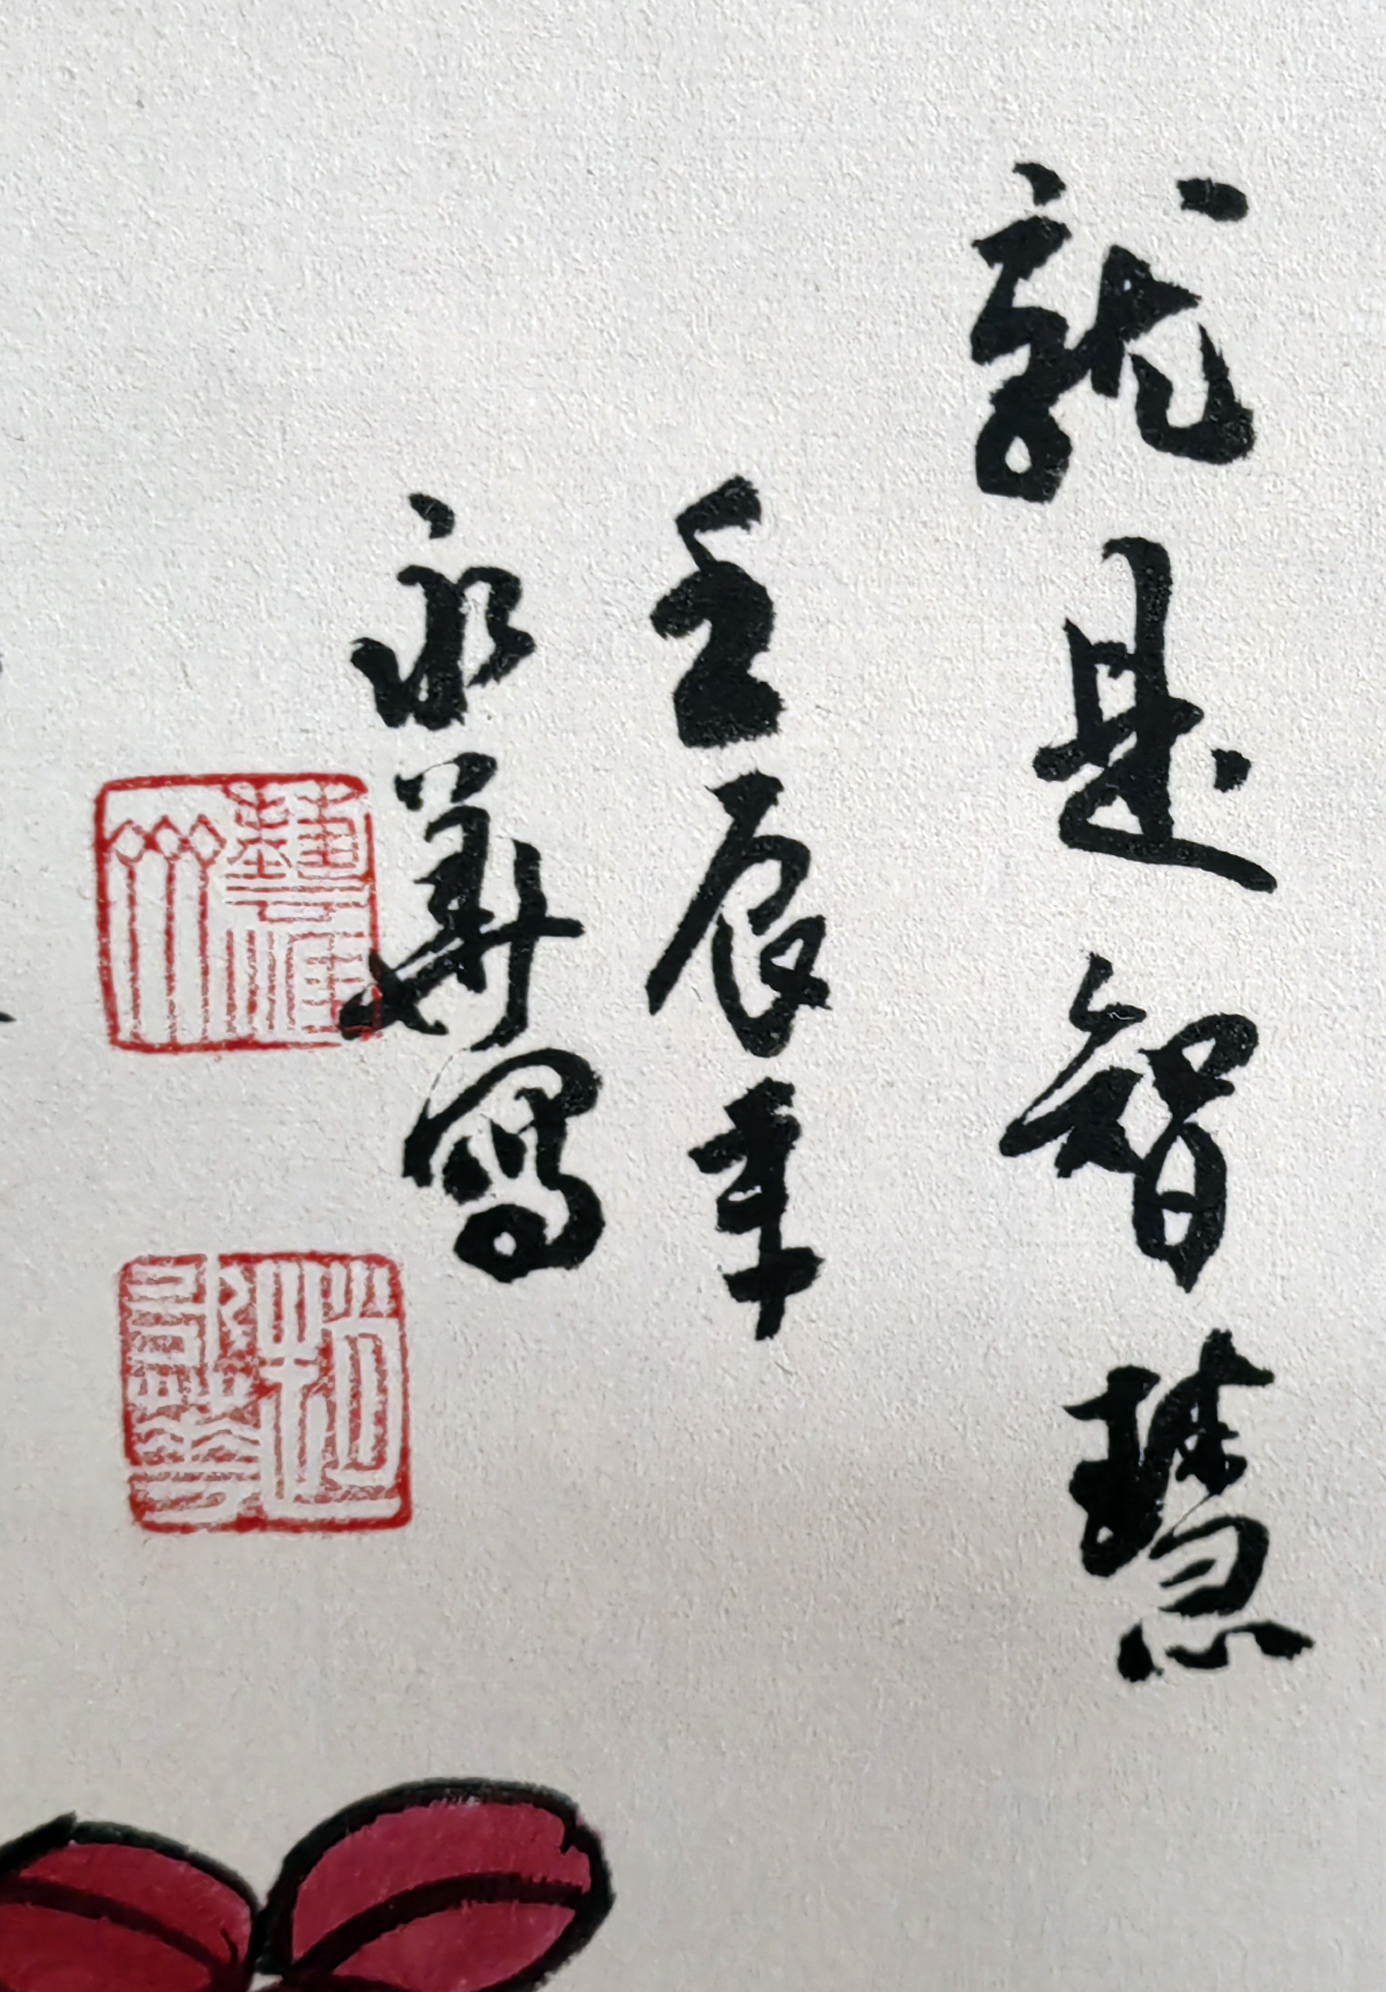 龍是智慧
壬辰年
永華寫